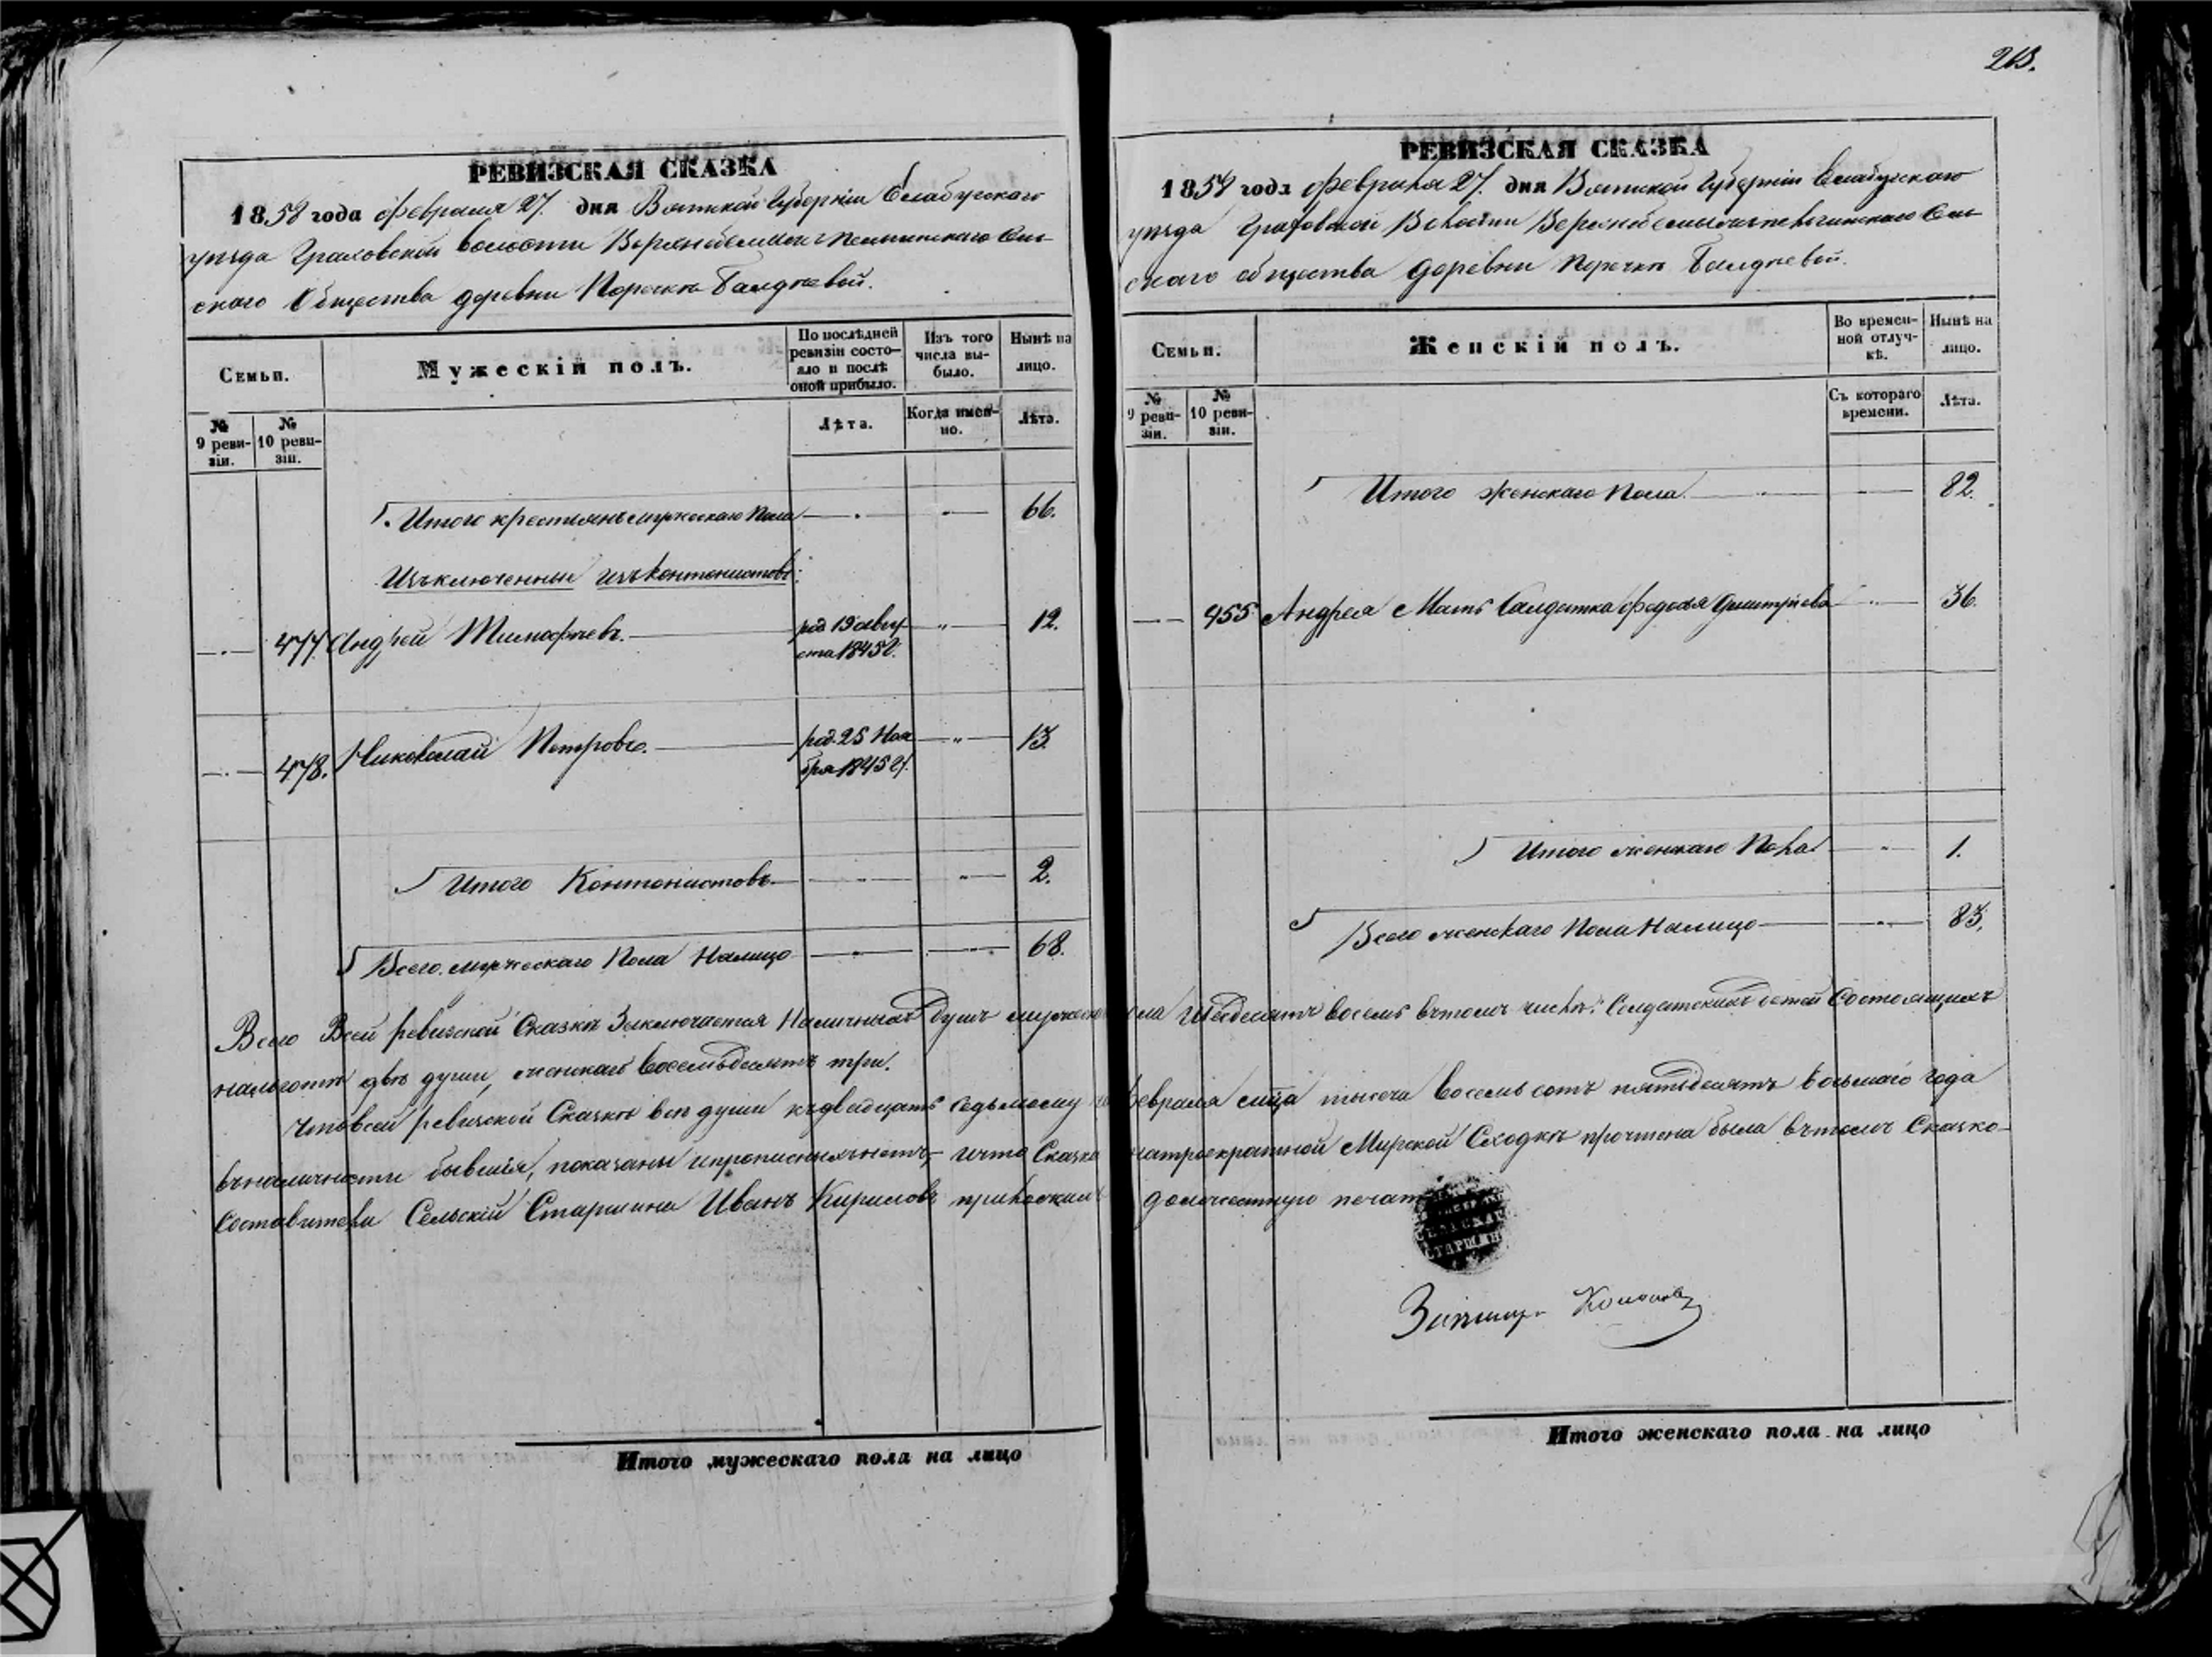 213.
РЕВИЗСКАЯ СКАЗКА
1858 года февраля 27. дня Вятской Губерніи Елабугскаго
уѣзда Граховской волости Сель-
скаго Общества деревни Поречки Балдеевой.
Семьи.
Мужескій полъ.
По послѣдней ревизіи состо-
яло и послѣ оной прибыло.
Изъ того числа вы-
было.
Нынѣ на лицо.
№ 9 реви-
зіи.
№ 10 реви-
зіи.
Лѣта.
Когда имен-
но.
Лѣта.
Итого крестьянъ мужескаго Пола 66.
Изъключенныи изъ Контонистовъ:
477 Андрей Тимофѣевъ. род. 19 авгу-
ста 1845 г. 12.
478. Николай Петровъ. род. 25 Ноя
бря 1845 г. 13.
Итого Контонистовъ 2.
Всего мужескаго Пола Налицо 68.
РЕВИЗСКАЯ СКАЗКА
1858 года февраля 27. дня Вятской Губерніи Елабугскаго
уѣзда Граховской Волости Сель-
скаго общества деревни Поречки Балдеевой.
Семьи.
Женскій полъ.
Во времен-
ной отлуч-
кѣ.
Нынѣ на лицо.
№ 9 реви-
зіи.
№ 10 реви-
зіи.
Съ котораго времени.
Лѣта.
Итого женскаго Пола. 82.
455 Андрея Мать Солдатка Федосья Дмитріева 36.
Итого женскаго Пола 1.
Всего женскаго Пола Налицо 83.
Всего Всей ревизской Сказкѣ Заключается Наличныхъ душъ мужеско пола Шесдесятъ восемь въ томъ числѣ: Солдатскихъ детей Состоящихъ
нальготѣ двѣ души, женскаго Восемьдесятъ три.
Чтовсей ревизской Сказкѣ всѣ души къ двадцать седьмому февраля тысеча восемь сотъ пятьдесятъ восьмаго года
въналичности бывшія, показаны ипрописныхънетъ, ичто Сказка натроекратной Мирской Сходкѣ прочтена была въ томъ Сказко-
Составители Сельскій Старшина Иванъ Кириловъ приложилъ должностную печать
СЕЛЬСКАГО
СТАРШИНЫ
Итого мужескаго пола на лицо
Итого женскаго пола на лицо